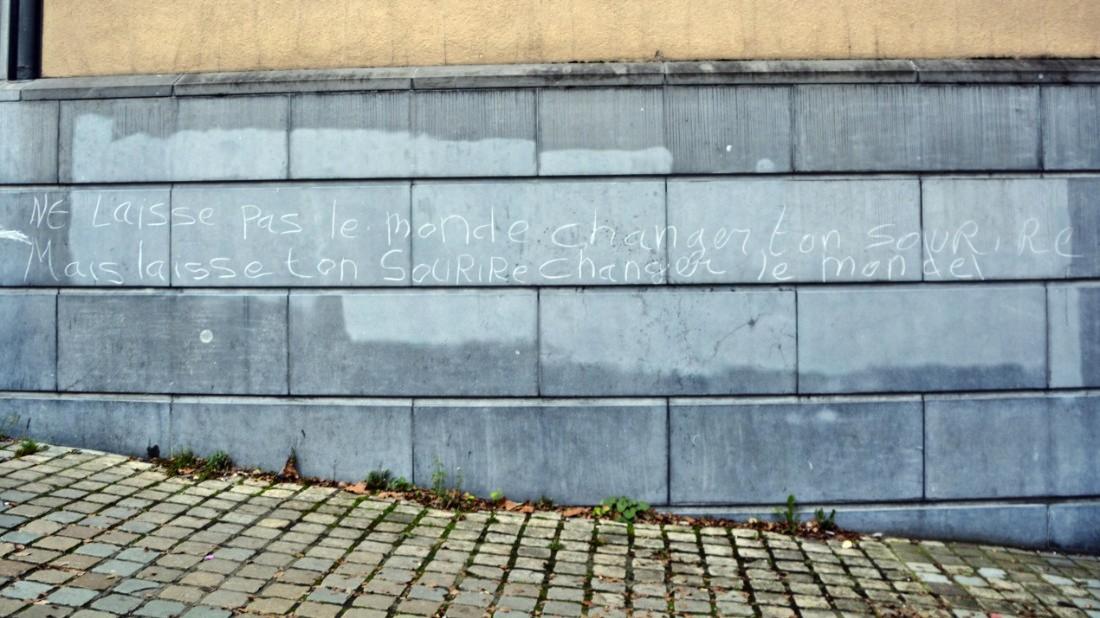 NE Laisse pas le monde changer ton SOURIRE
Mais laisse ton SOURIRE changer le monde!